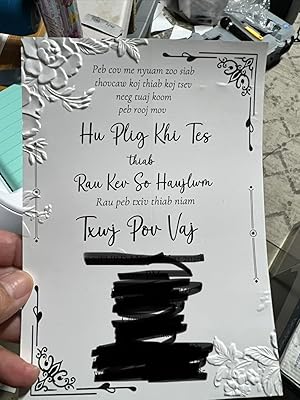 Peb cov me nyuam zoo siab
thovcaw koj thiab koj tsev
neeg tuaj koom
peb rooj mov
Hu Plig Khi Tes
thiab
Rau Kev So Haujlwm
Rau peb txiv thiab niam
Txwj Pov Vaj